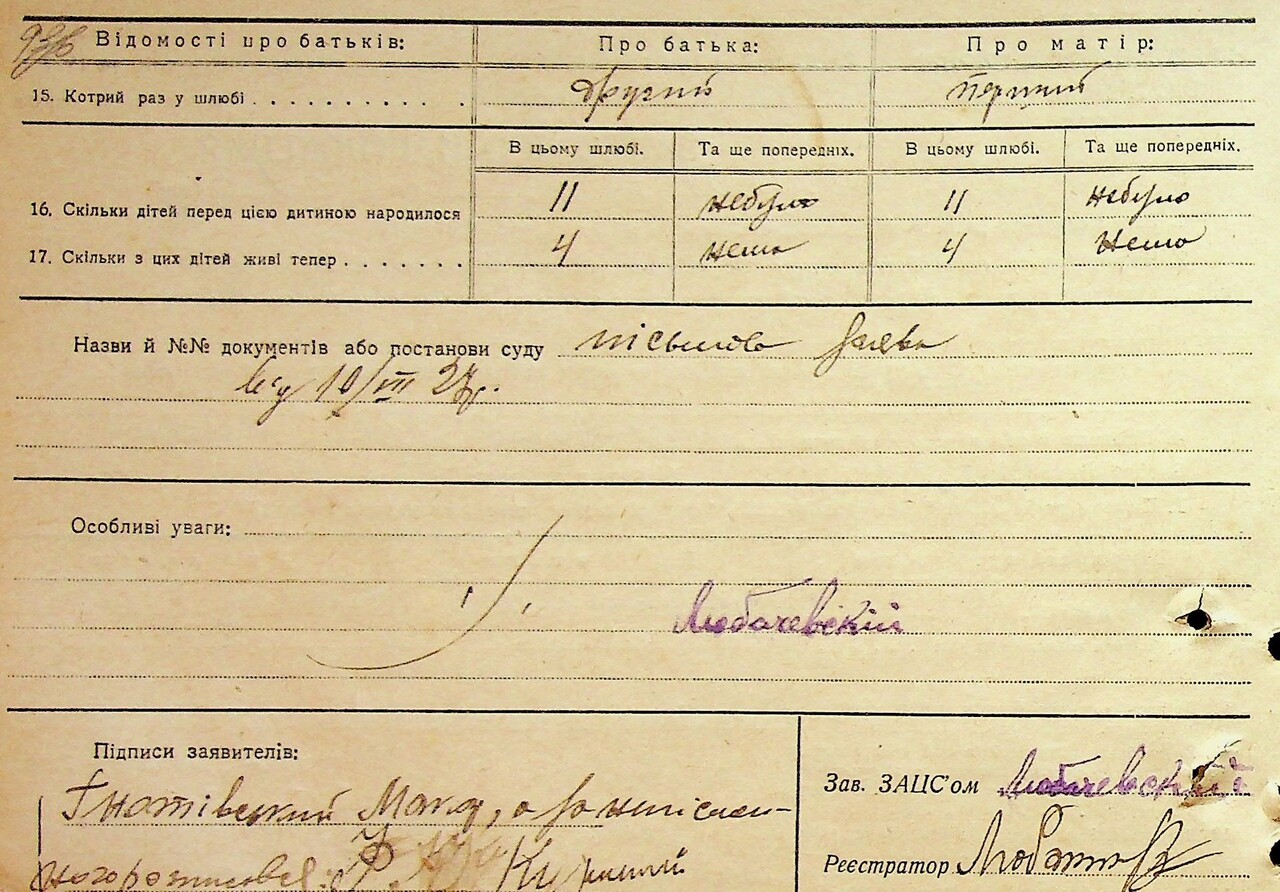 Відомості про батьків: Про батька: Про матір:
15. Котрий раз у шлюбі . . . . . . . . . . . другий перший
В цьому шлюбі. Та ще попередніх. В цьому шлюбі. Та ще попередніх.
16. Скільки дітей перед цією дитиною народилося 11 небуло 11 небуло
17. Скільки з цих дітей живі тепер . . . . . . . 4 нема 4 нема
Назви й №№ документів або постанови суду письмова заява
від 10/III 27р.
Особливі уваги:
Любачевский
Підписи заявителів:
Зав. ЗАЦС'ом Любачевский
Гнатівський
Реєстратор